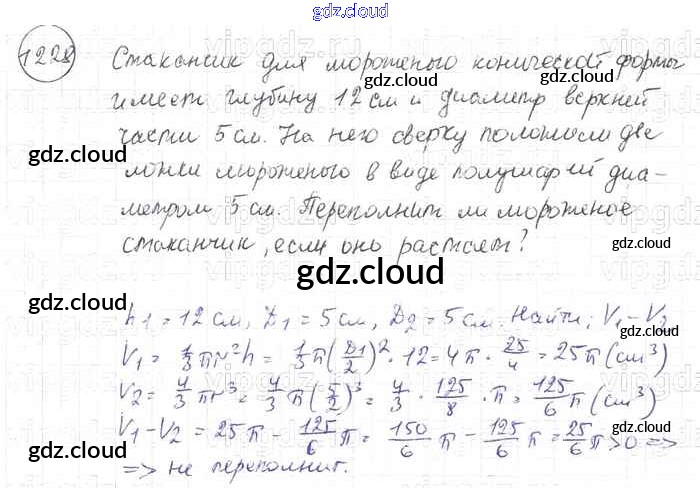 gdz.cloud
1228
Стаканчик для мороженого конической формы
gdz.cloud gdz.cloud
имеет глубину 12 см и диаметр верхней
части 5 см. На него сверху положили две
gdz.cloud gdz.cloud
ложки мороженого в виде полушарий диа-
метром 5 см. Переполнит ли мороженое
стаканчик, если оно растает?
gdz.cloud
gdz.cloud
gdz.cloud
h1 = 12 см, D1 = 5 см, D2 = 5 см. Найти: V1 - V2
V1 = 1/3 πr²h = 1/3 π(D1/2)² · 12 = 4π · 25/4 = 25π (см³)
V2 = 4/3 πr³ = 4/3 π(5/2)³ = 4/3 · 125/8 · π = 125/6 π (см³)
V1 - V2 = 25π - 125/6 π = 150/6 π - 125/6 π = 25/6 π > 0 =>
gdz.cloud gdz.cloud
=> не переполнит.
gdz.cloud